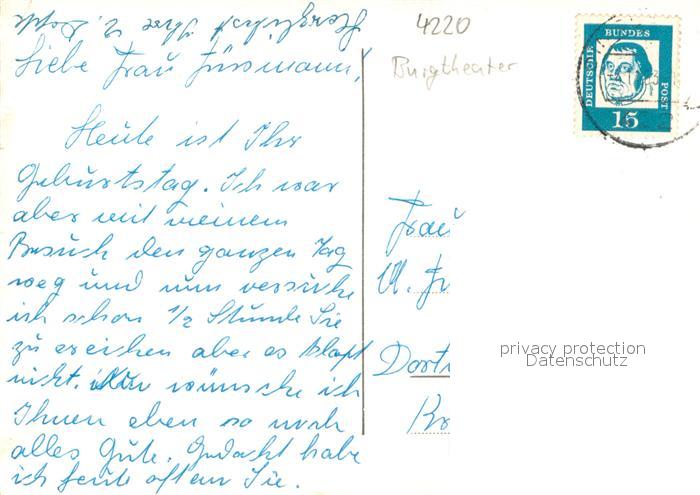 Liebe Frau Füssmann,
Heute ist Ihr
Geburtstag. Ich war
aber mit meinem
Besuch den ganzen Tag
weg und nun versuche
ich schon 1/2 Stunde Sie
zu ereichen aber es klapt
nicht. Nun wünsche ich
Ihnen eben so noch
alles Gute. Gedacht habe
ich heute öfters Sie.
Herzlichst Ihre
4220
Burgtheater
DEUTSCHE BUNDES POST
15
Frau
Dort
privacy protection
Datenschutz